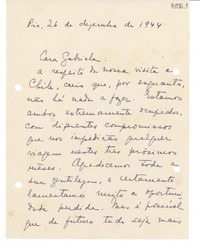 Rio, 26 de dezembro de 1944
Cara Gabriela.
a respeito da nossa visita ao
Chile, creio que, por enquanto,
não há nada a fazer. Estamos
ambos extremamente ocupados,
com diferentes compromissos
que nos impedirão qualquer
viagem nestes três próximos
meses. Agradecemos toda a
sua gentileza, e certamente
lamentamos muito a oportuni
dade perdida. Mas é possível
que de futuro tudo seja mais